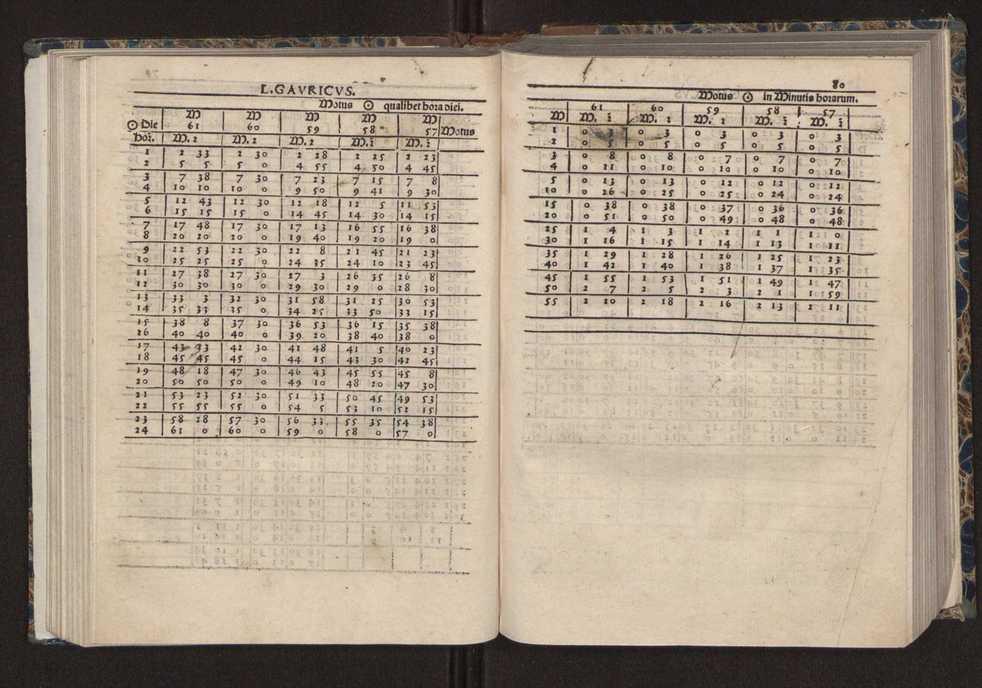 L. GAVRICVS.
Motus ☉ qualibet hora diei.
M M M M M
☉ Die 61 60 59 58 57 Motus
Hor. M. 2 M. 2 M. 2 M. 2 M. 2
1 2 33 2 30 2 28 2 25 2 23
2 5 5 5 0 4 55 4 50 4 45
3 7 38 7 30 7 23 7 15 7 8
4 10 10 10 0 9 50 9 41 9 30
5 12 43 12 30 12 18 12 5 11 53
6 15 15 15 0 14 45 14 30 14 15
7 17 48 17 30 17 13 16 55 16 38
8 20 20 20 0 19 40 19 20 19 0
9 22 53 22 30 22 8 21 45 21 23
10 25 25 25 0 24 35 24 10 23 45
11 27 38 27 30 27 3 26 35 26 8
12 30 30 30 0 29 30 29 0 28 30
13 33 3 32 30 31 58 31 25 30 53
14 35 33 35 0 34 25 33 50 33 15
15 38 8 37 30 36 53 36 15 35 38
26 40 40 40 0 39 20 38 40 38 0
17 43 33 42 30 41 48 41 5 40 23
18 45 45 45 0 44 15 43 30 42 45
19 48 18 47 30 46 43 45 55 45 8
20 50 50 50 0 49 10 48 20 47 30
21 53 23 52 30 51 33 50 45 49 53
22 55 55 55 0 54 5 53 10 52 15
23 58 28 57 30 56 33 55 35 54 38
24 61 0 60 0 59 0 58 0 57 0
80
Motus ☉ in Minutis horarum.
61 60 59 58 57
M M. 2 M. 2 M. 2 M. 2 M. 2
1 0 3 0 3 0 3 0 3 0 3
2 0 5 0 5 0 5 0 5 0 5
3 0 8 0 8 0 7 0 7 0 7
4 0 11 0 10 0 10 0 10 0 10
5 0 13 0 13 0 12 0 12 0 12
10 0 26 0 25 0 25 0 24 0 24
15 0 38 0 38 0 37 0 36 0 36
20 0 51 0 50 0 49 0 48 0 48
25 1 4 1 3 1 1 1 1 0
30 1 16 1 15 1 14 1 13 1 11
35 1 29 1 28 1 26 1 25 1 23
40 1 42 1 40 1 38 1 37 1 35
45 1 55 1 53 1 51 1 49 1 47
50 2 7 2 5 2 3 2 1 1 59
55 2 20 2 18 2 16 2 13 2 11